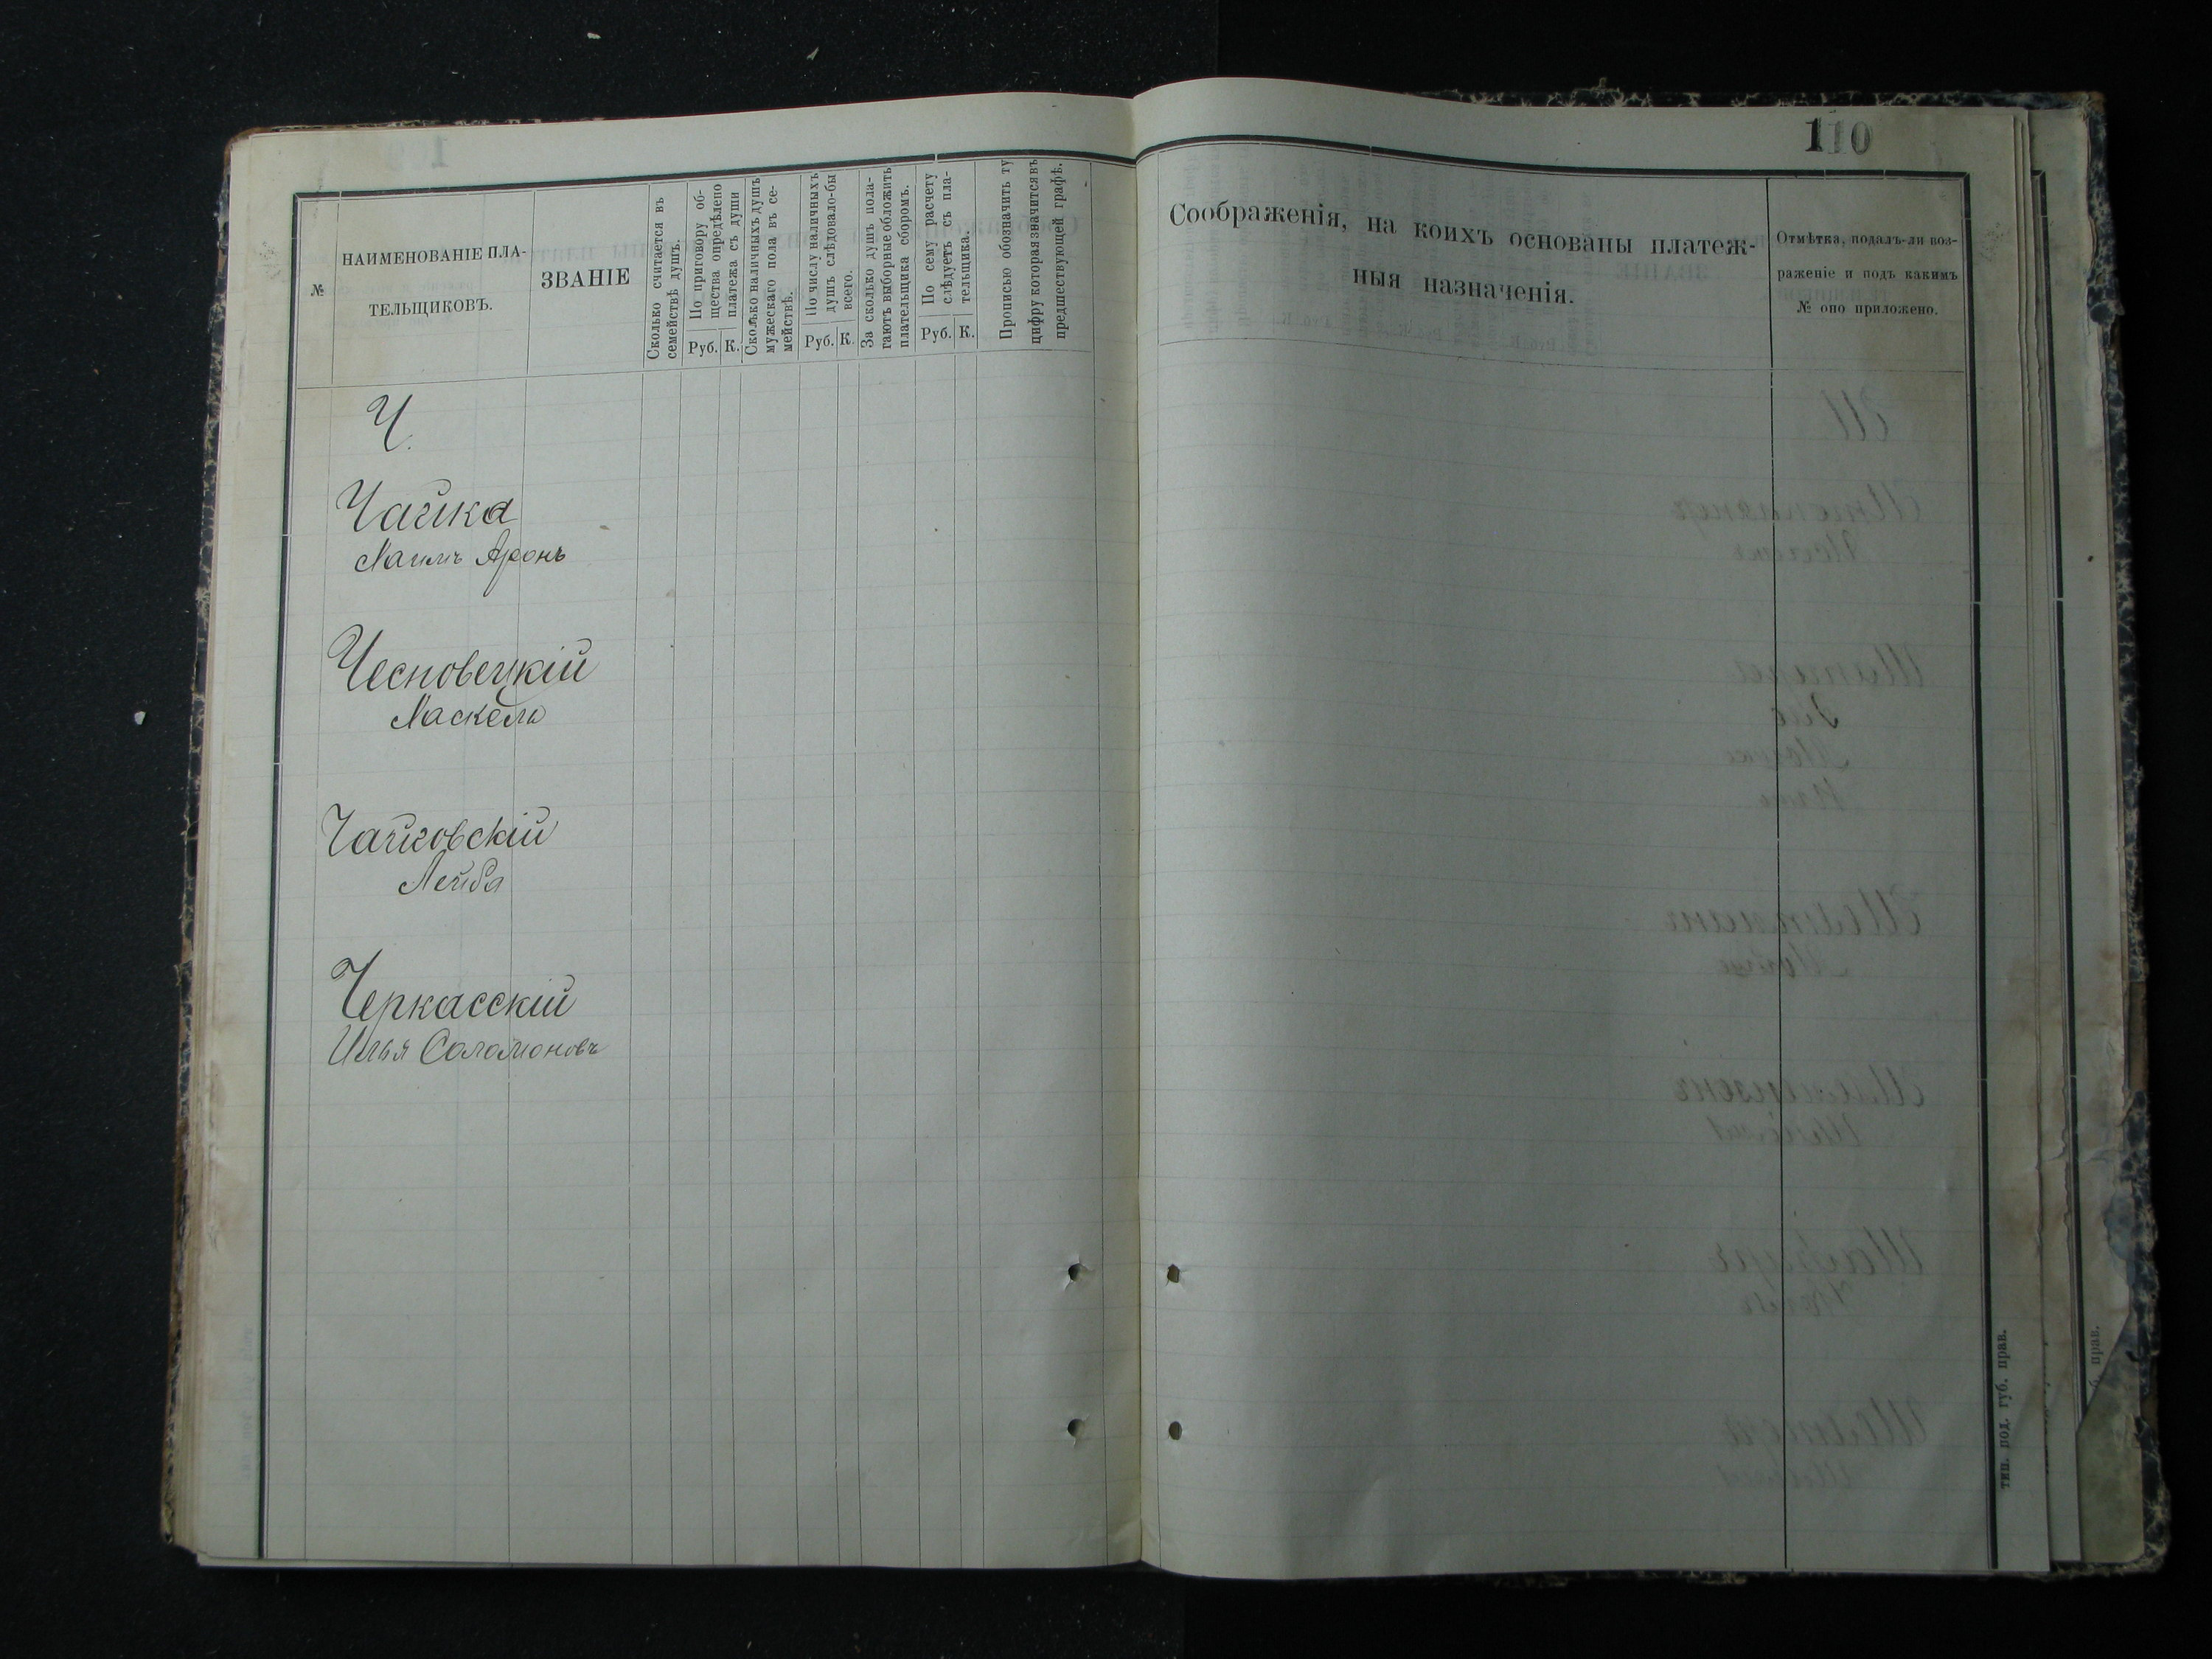 110
№
НАИМЕНОВАНІЕ ПЛА-
ТЕЛЬЩИКОВЪ.
ЗВАНІЕ
Сколько считается въ
семействѣ душъ.
По приговору об-
щества опредѣлено
платежа съ души
Руб. К.
Сколько наличныхъ душъ
мужескаго пола въ се-
мействѣ.
По числу наличныхъ
душъ слѣдовало-бы
всего.
Руб. К.
За сколько душъ пола-
гаютъ выборные обложить
плательщика сборомъ.
По сему расчету
слѣдуетъ съ пла-
тельщика.
Руб. К.
Прописью обозначить ту
цифру которая значится въ
предшествующей графѣ.
Соображенія, на коихъ основаны платеж-
ныя назначенія.
Отмѣтка, подалъ-ли воз-
раженіе и подъ какимъ
№ оно приложено.
Ч.
Чайка
Хаимъ Аронъ
Чесновецкій
Хаскель
Чайковскій
Лейба
Черкасскій
Илья Соломоновъ
тип. под. губ. прав.
б. прав.